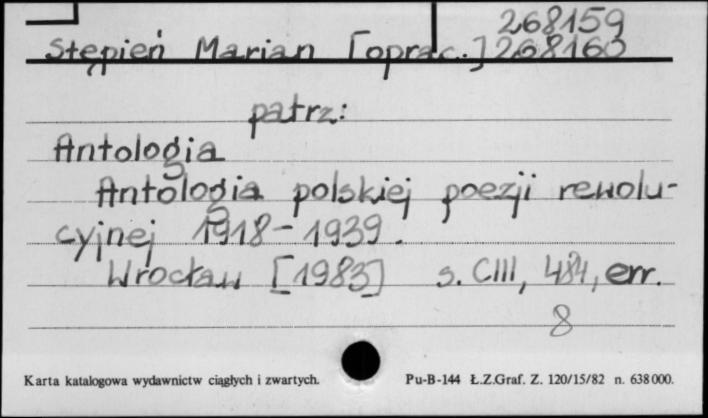 268159
Stępień Marian [oprac.] 268160
patrz:
Antologia
Antologia polskiej poezji rewolu-
cyjnej 1918-1939.
Wrocław [1983] s. CIII, 484, err.
8
Karta katalogowa wydawnictw ciągłych i zwartych. Pu-B-144 Ł.Z.Graf. Z. 120/15/82 n. 638000.